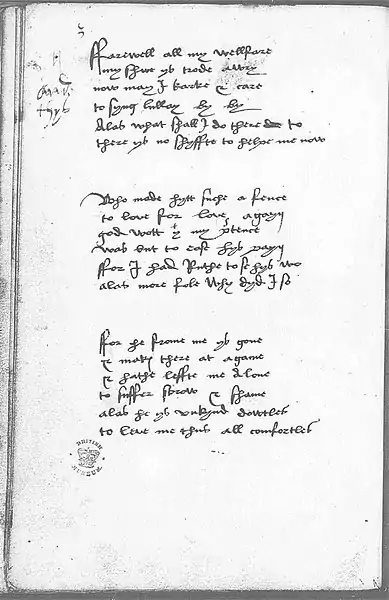 ffarewell all my wellfare
my shwe ys trode awry
now may I karke & care
to syng lullay by by
Alas what shall I do there to
there ys no shyffte to helpe me now
Who made hytt suche a fence
to love for love agayn
god wott yt my ptence
was but to ease hys payn
ffor I had Ruthe to se hys wo
alas more fole why dyd I so
for he frome me ys gone
& makes there at a game
& hathe leffte me Alone
to suffer sorow & shame
alas he ys unkynd dowtles
to leve me thus all comfortles
BRITISH
MUSEUM